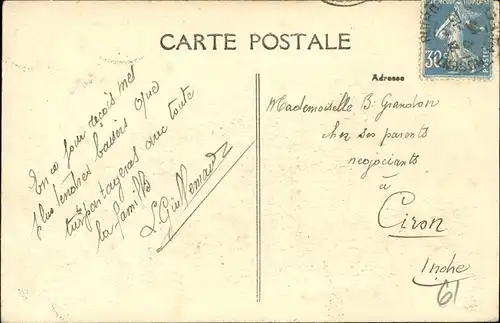 CARTE POSTALE
Adresse
En ce jour reçois mes
plus tendres baisers que
tu partageras avec toute
la famille
L Guillemard
Mademoiselle B. Grandon
chez ses parents
négociants
à
Ciron
Indre
61
30c